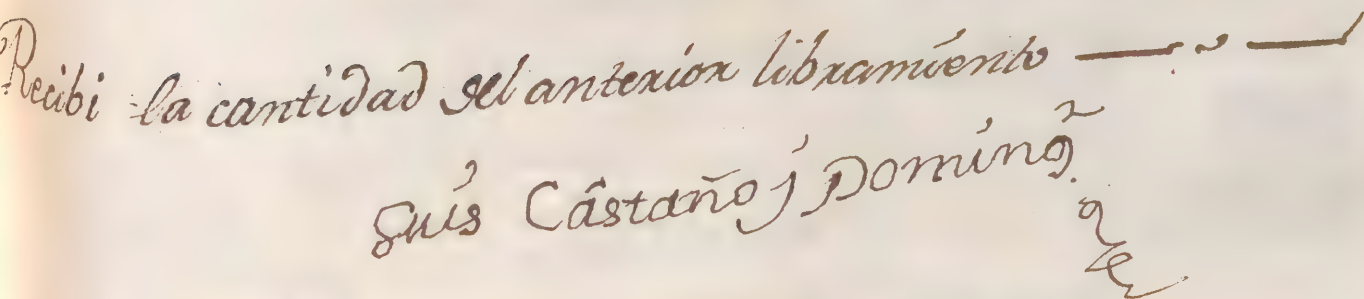 Recibi la cantidad del anterior libramiento
Luis Castaño y Doming.
uez